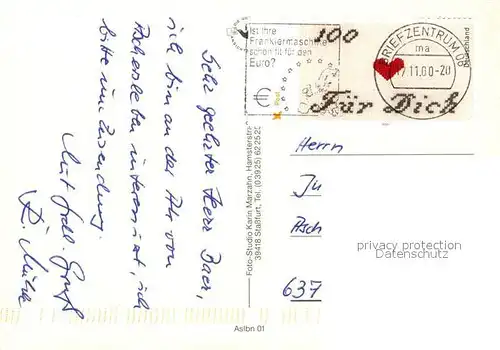 Sehr geehrter Herr Baer,
ich bin an der Ak von
Aschersleben interessiert, ich
bitte um Zusendung.
Mit frdl. Gruß
R.
Foto-Studio Karin Marzahn, Hamsterstr.
39418 Staßfurt, Tel. (03925) 622525
Aslbn 01
Ist Ihre
Frankiermaschine
schon fit für den
Euro?
Post
100
Für Dich
Deutschland
BRIEFZENTRUM 06
ma
17.11.00-20
Herrn
Ju
Asch
637
privacy protection
Datenschutz